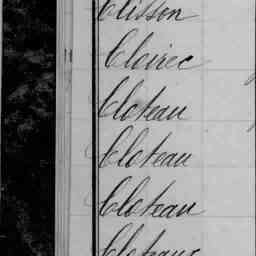 Clisson
Cloirec
Cloteau
Cloteau
Cloteau